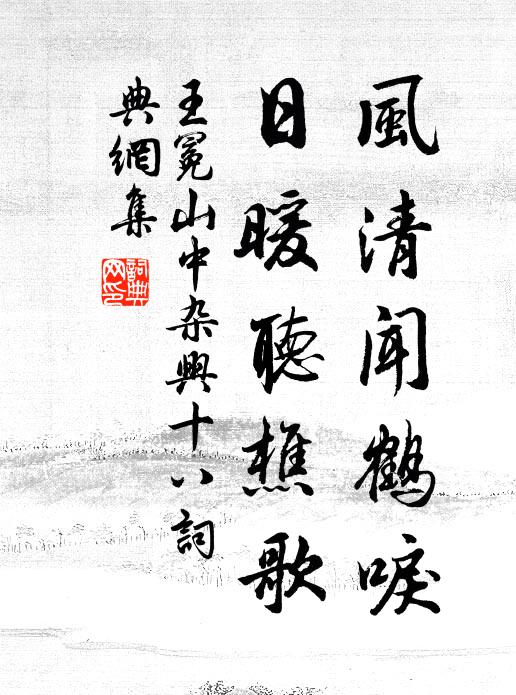 風清聞鶴唳
日暖聽樵歌
王冕山中杂興十八詞
典網集
詞典
网印